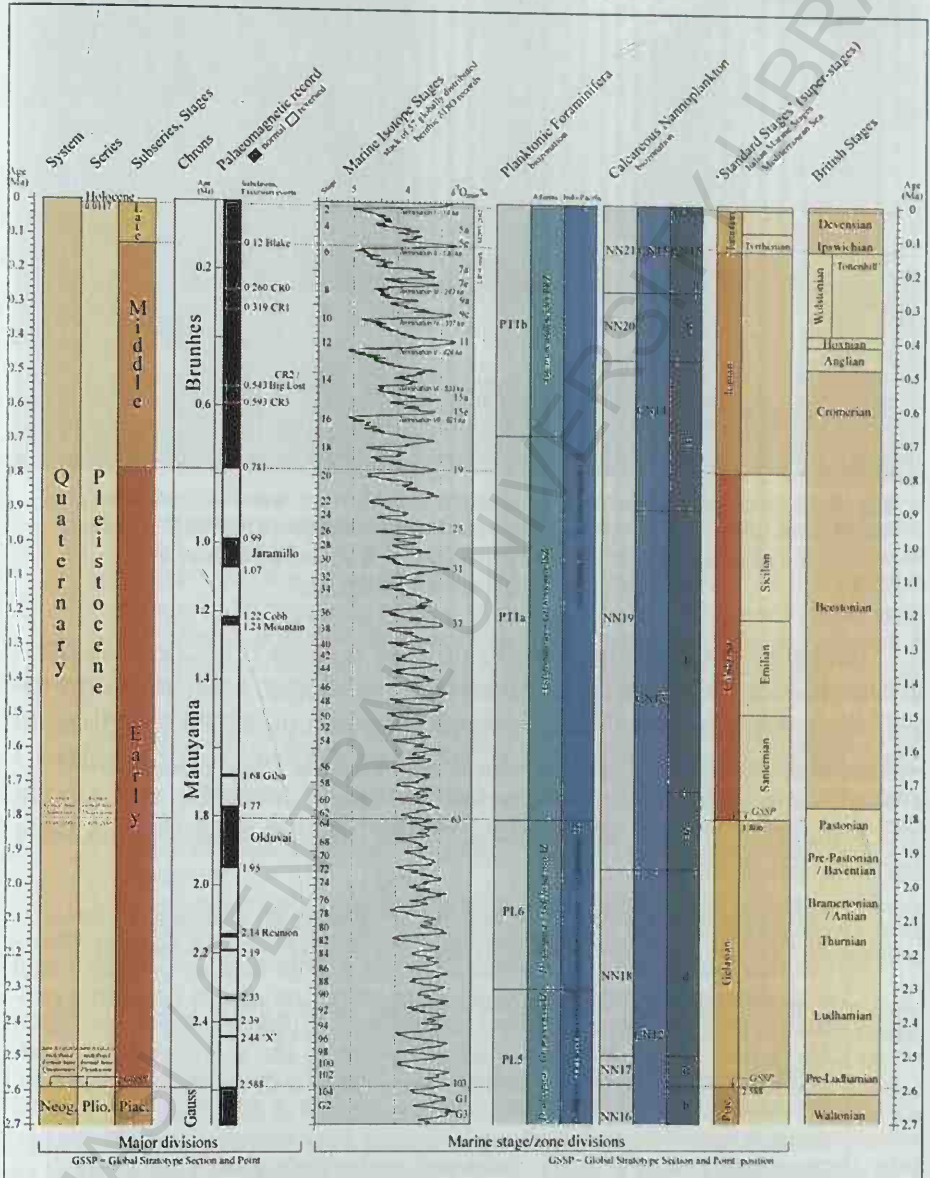 System
Series
Subseries, Stages
Chrons
Palaeomagnetic record
normal reversed
Marine Isotope Stages
stack of 57 globally distributed
benthic δ18O records
Planktonic Foraminifera
biozonation
Calcareous Nannoplankton
biozonation
'Standard Stages' (super-stages)
Italian Marine Stages
Mediterranean Sea
British Stages
Age
(Ma)
0
0.1
0.2
0.3
0.4
0.5
0.6
0.7
0.8
0.9
1.0
1.1
1.2
1.3
1.4
1.5
1.6
1.7
1.8
1.9
2.0
2.1
2.2
2.3
2.4
2.5
2.6
2.7
Quaternary
Neog.
Holocene
0.0117
Pleistocene
Plio.
Late
Middle
Early
Piac.
Brunhes
Matuyama
Gauss
Age
(Ma)
0.2
0.6
1.0
1.2
1.4
1.8
2.0
2.2
2.4
0.12 Blake
0.260 CR0
0.319 CR1
CR2 /
0.543 Big Lost
0.593 CR3
0.781
0.99
Jaramillo
1.07
1.22 Cobb
1.24 Mountain
1.68 Gilsa
1.77
Olduvai
1.95
2.14 Reunion
2.19
2.33
2.39
2.44 'X'
2.588
Stage
5
4
2
4
6
8
10
12
14
16
18
20
22
24
26
28
30
32
34
36
38
40
42
44
46
48
50
52
54
56
58
60
62
64
68
70
72
74
76
78
80
82
84
86
88
90
92
94
96
98
100
102
104
G2
5a
5e
7a
7e
9a
9e
11
15a
15e
19
25
31
37
63
103
G1
G3
Atlantic
Indo-Pacific
PT1b
PT1a
PL6
PL5
NN21
NN20
NN19
NN18
NN17
NN16
CN15
CN14
CN13
CN12
Tyrrhenian
Ionian
Calabrian
Sicilian
Emilian
Santernian
GSSP
1.806
Gelasian
GSSP
2.588
Piac.
Devensian
Ipswichian
Wolstonian
Tottenhill
Hoxnian
Anglian
Cromerian
Beestonian
Pastonian
Pre-Pastonian
/ Baventian
Bramertonian
/ Antian
Thurnian
Ludhamian
Pre-Ludhamian
Waltonian
Age
(Ma)
0
0.1
0.2
0.3
0.4
0.5
0.6
0.7
0.8
0.9
1.0
1.1
1.2
1.3
1.4
1.5
1.6
1.7
1.8
1.9
2.0
2.1
2.2
2.3
2.4
2.5
2.6
2.7
Major divisions
GSSP = Global Stratotype Section and Point
Marine stage/zone divisions
GSSP = Global Stratotype Section and Point position
CENTRAL UNIVERSITY LIBRA